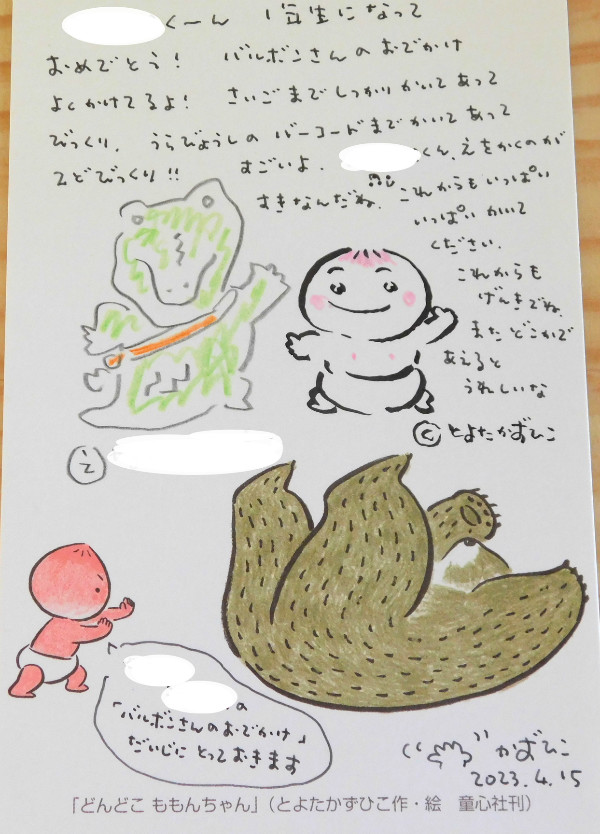 くーん 1年生になって
おめでとう! バルボンさんのおでかけ
よくかけてるよ! さいごまでしっかりかいてあって
びっくり。 うらびょうしのバーコードまでかいてあって
2どびっくり!! すごいよ。 くん、えをかくのが
すきなんだね。 これからもいっぱい
いっぱいかいて
ください。
これからも
げんきでね。
またどこかで
あえると
うれしいな
© とよたかずひこ
え
の
「バルボンさんのおでかけ」
だいじにとっておきます
かずひこ
2023.4.15
「どんどこ ももんちゃん」(とよたかずひこ作・絵 童心社刊)